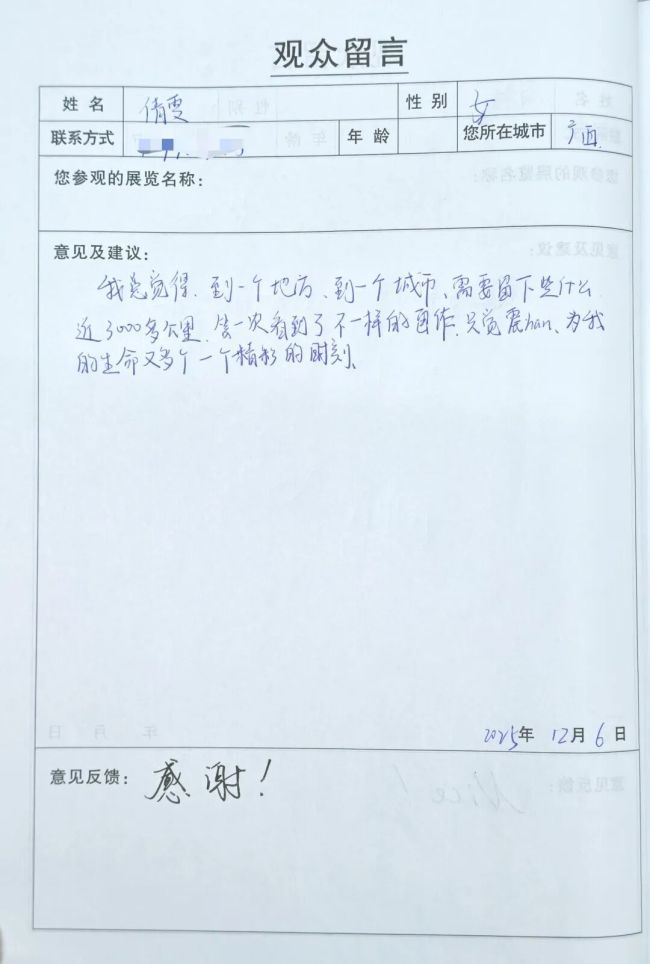 观众留言
姓 名 倩雯 性 别 女
联系方式 年 龄 您所在城市 广西
您参观的展览名称：
意见及建议：
我总觉得、到一个地方、到一个城市、需要留下些什么
近3000多公里、第一次看到了不一样的画作、只觉震han、为我
的生命又多个一个精彩的时刻、
2025年 12月 6日
意见反馈： 感谢！